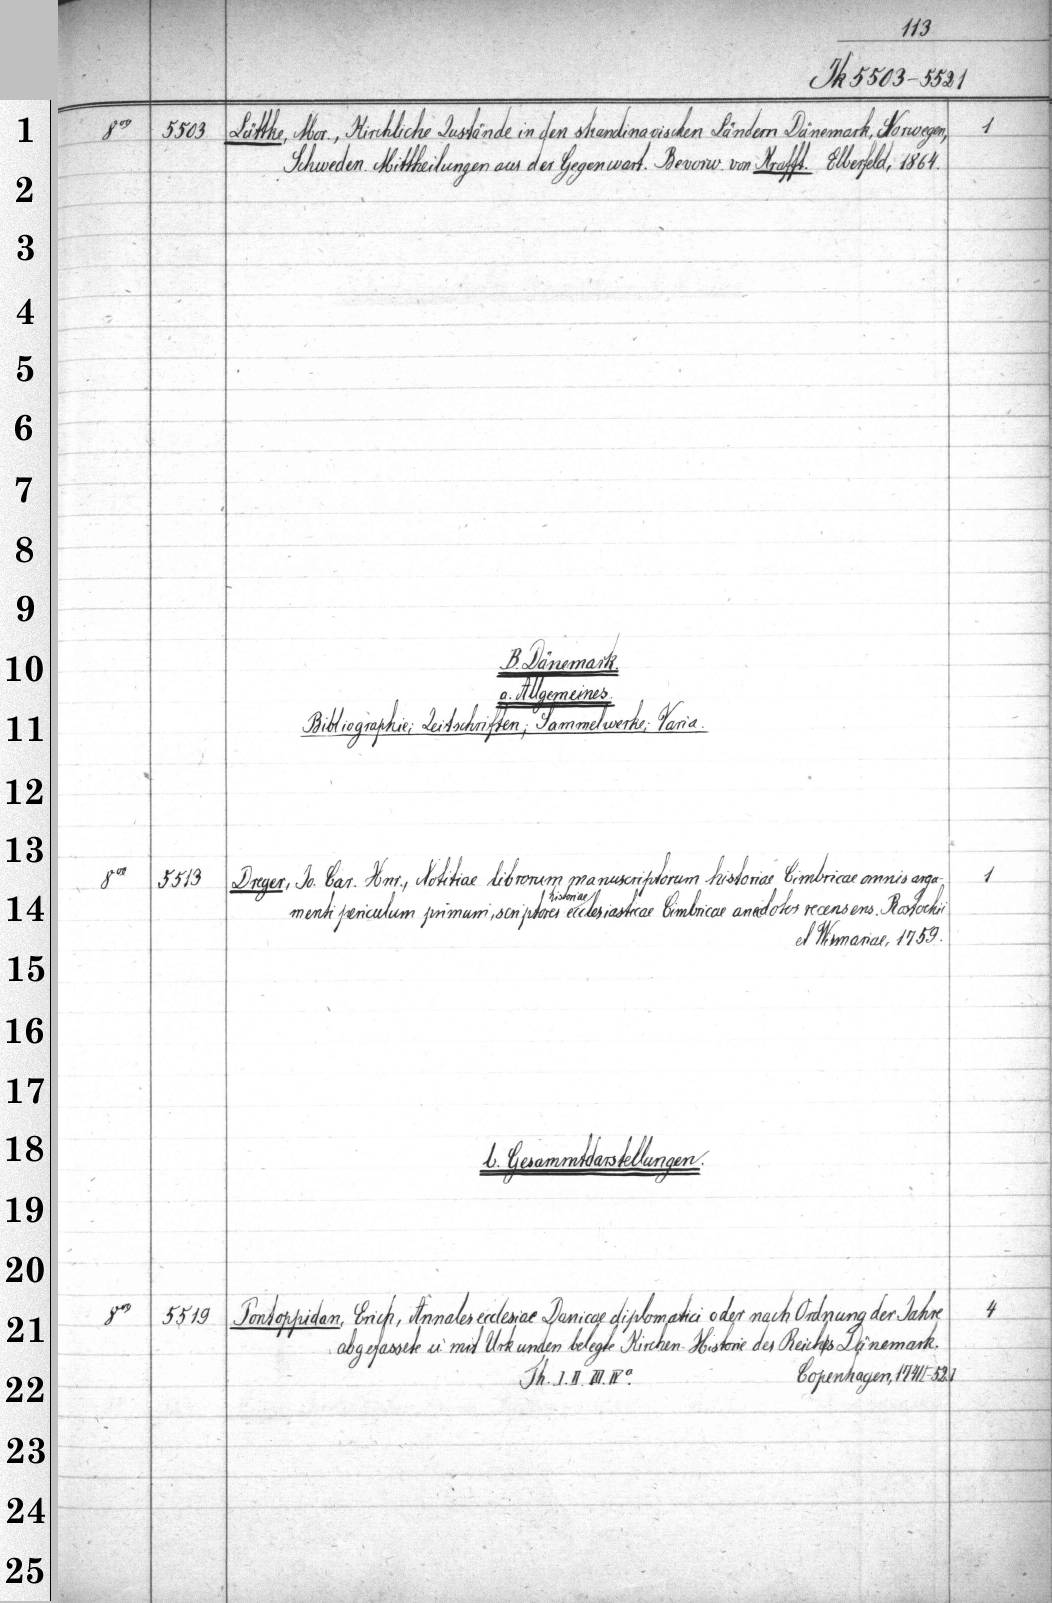 113
Ik 5503-5521
1
8vo 5503 Lüttke, Mor., Kirchliche Zustände in den skandinavischen Ländern Dänemark, Norwegen, 1
Schweden. Mittheilungen aus der Gegenwart. Bevorw. von Krafft. Elberfeld, 1864.
2
3
4
5
6
7
8
9
10
B. Dänemark.
a. Allgemeines.
11
Bibliographie; Zeitschriften; Sammelwerke; Varia.
12
13
8vo 5513 Dreyer, Jo. Car. Hnr., Notitiae librorum manuscriptorum historiae Cimbricae omnis argu- 1
14
menti periculum primum, scriptores historiae ecclesiasticae Cimbricae anecdotos recensens. Rostochii
et Wismariae, 1759.
15
16
17
18
b. Gesammtdarstellungen.
19
20
8vo 5519 Pontoppidan, Erich, Annales ecclesiae Danicae diplomatici oder nach Ordnung der Jahre 4
21
abgefassete u mit Urkunden belegte Kirchen-Historie des Reichs Dänemark.
22
Th. I. II. III. IV. Copenhagen, 1741-52.
23
24
25